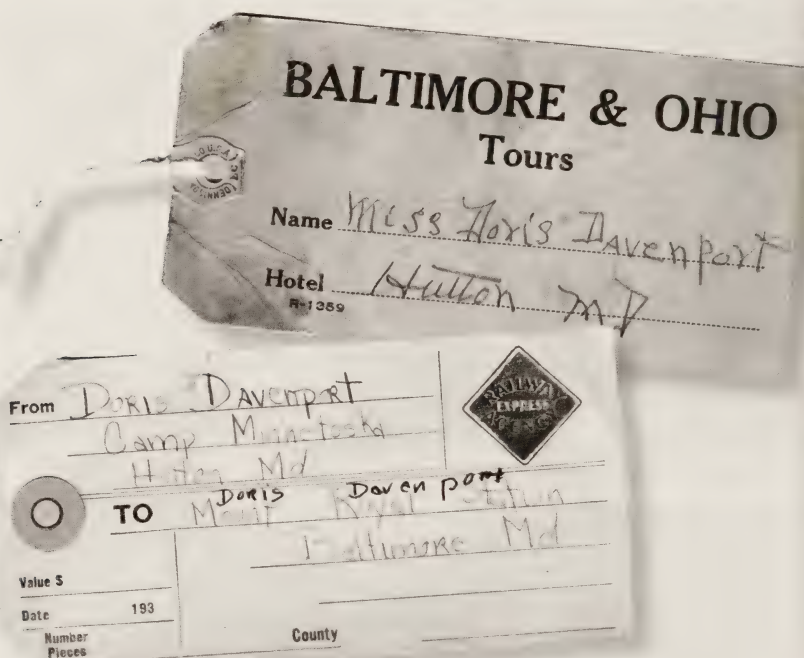 BALTIMORE & OHIO
Tours
Name Miss Doris Davenport
Hotel Hutton MD
R-1359
From DORIS DAVENPORT
Camp
Hutton Md
RAILWAY
EXPRESS
AGENCY
DORIS Davenport
TO Mount Royal Station
Baltimore Md
Value $
Date 193
Number
Pieces
County